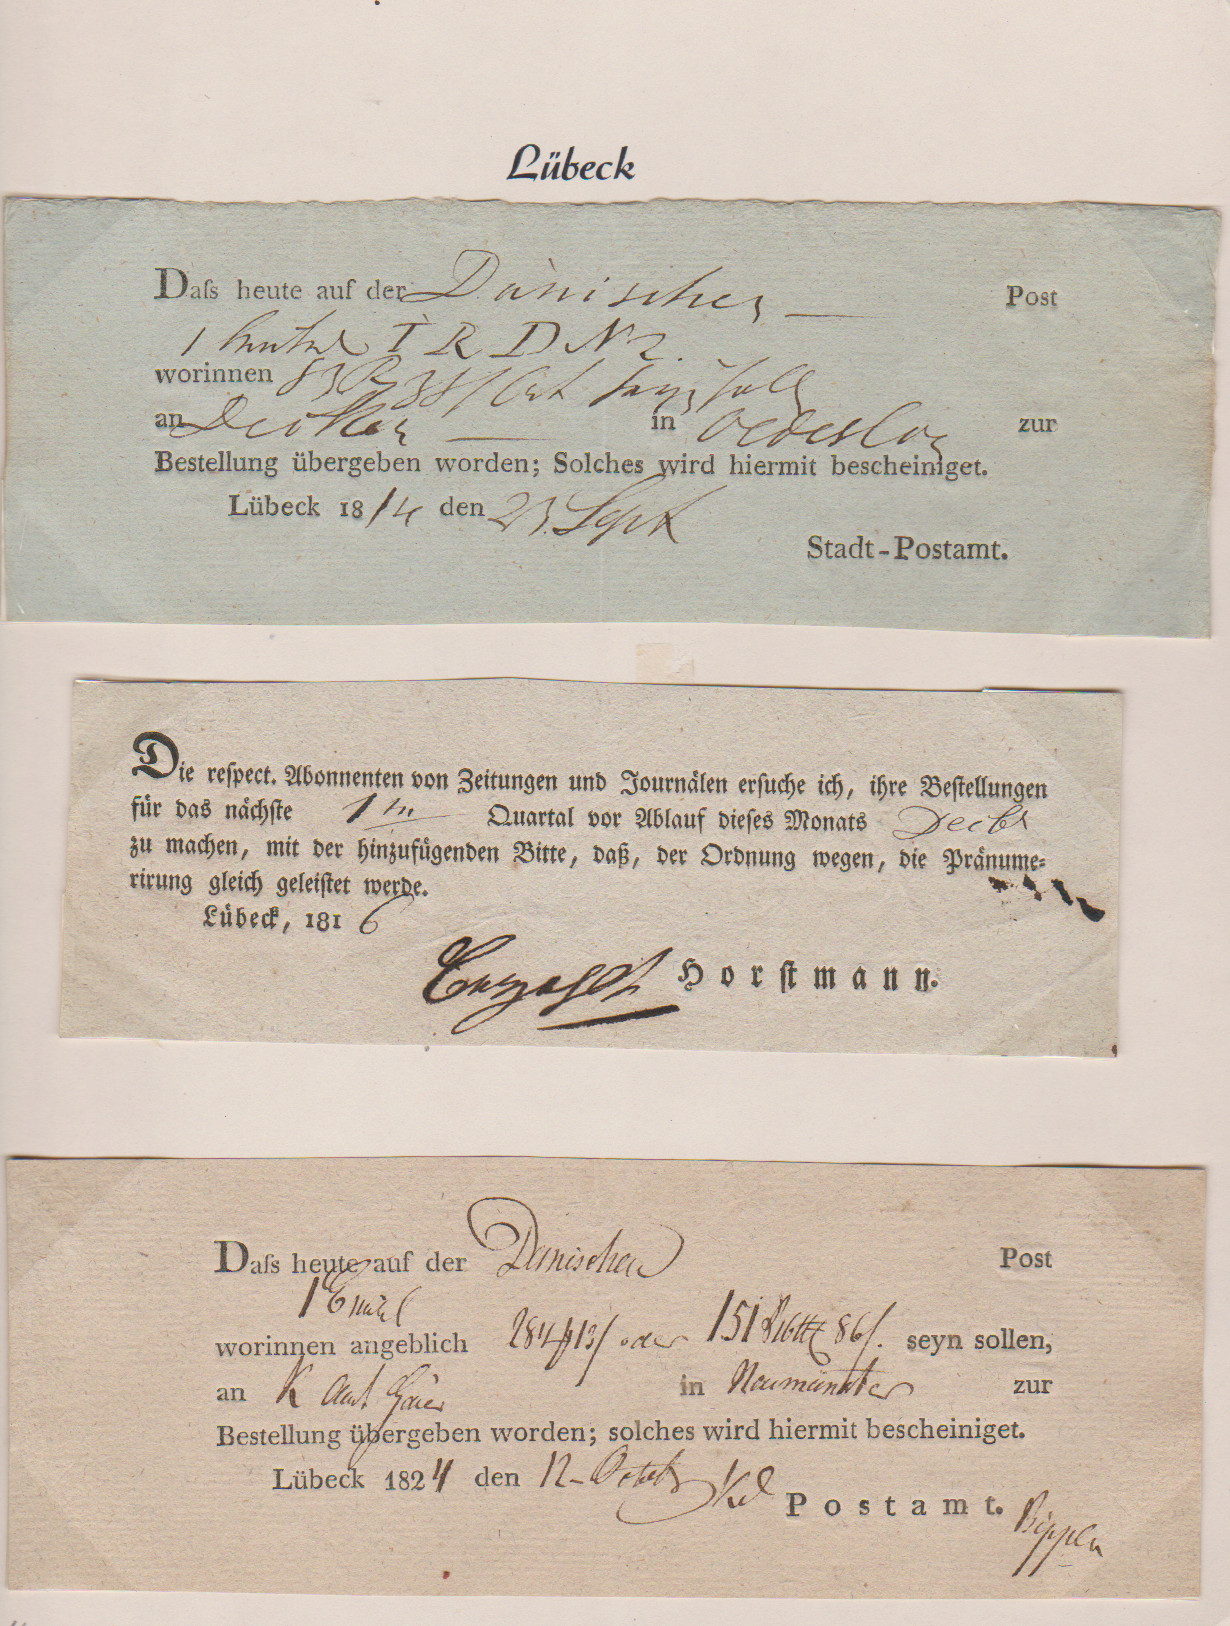 Lübeck
Daſs heute auf der Dänischen Post
1 T R D N 2.
worinnen
an Decker in Oedesloe zur
Bestellung übergeben worden; Solches wird hiermit bescheiniget.
Lübeck 1814 den 23. Sept
Stadt-Postamt.
Die reſpect. Abonnenten von Zeitungen und Journälen erſuche ich, ihre Beſtellungen
für das nächſte 1 tn Quartal vor Ablauf dieſes Monats Decbr
zu machen, mit der hinzufügenden Bitte, daß, der Ordnung wegen, die Pränume-
rirung gleich geleiſtet werde.
Lübeck, 1816
Horſtmann.
Daſs heute auf der Dänischen Post
1
worinnen angeblich oder 151 seyn sollen,
an in Neumünster zur
Bestellung übergeben worden; solches wird hiermit bescheiniget.
Lübeck 1824 den 12 Octob
Postamt.